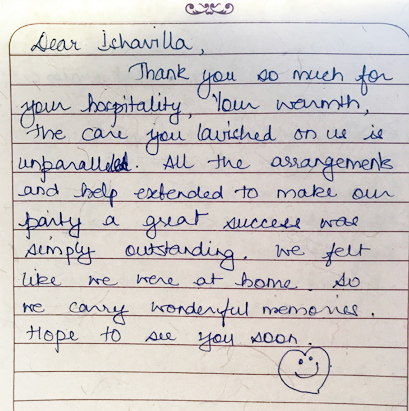 Dear Ishavilla,
Thank you so much for
your hospitality, Your warmth,
the care you lavished on us is
unparalleled. All the arrangements
and help extended to make our
party a great success was
simply outstanding. We felt
like we were at home. So
we carry wonderful memories.
Hope to see you soon.